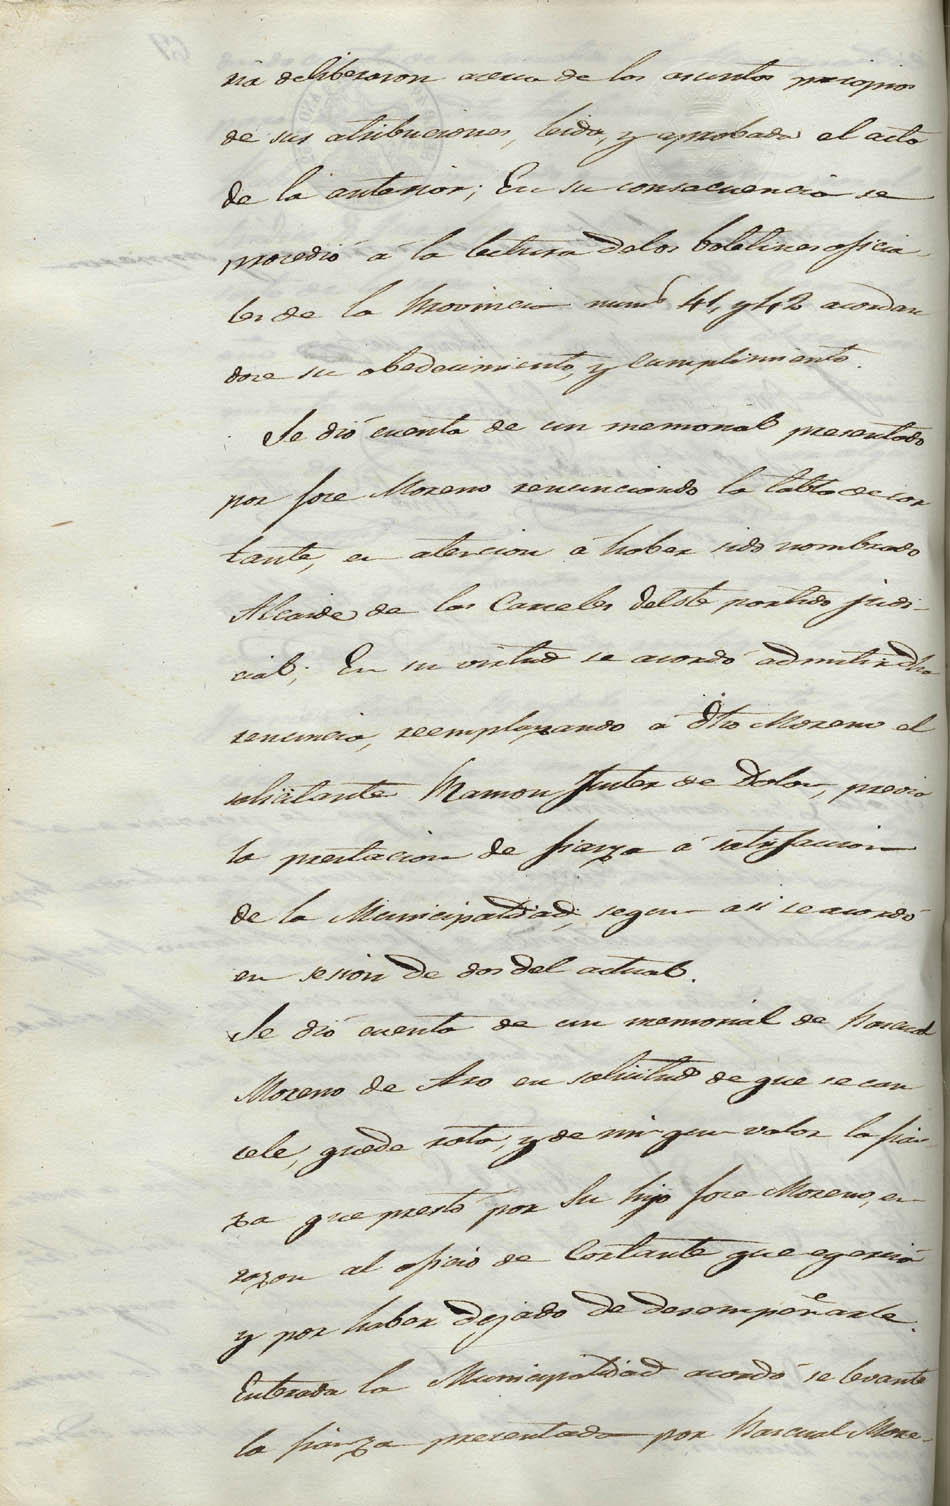 ria deliberaron acerca de los asuntos propios
de sus atribuciones, leida, y aprobada el acta
de la anterior; En su consecuencia se
procedió á la lectura delos boletines oficia-
les de la Provincia num.s 41, y 42 acordan
dose su obedecimiento, y cumplimiento.
Se dió cuenta de un memorial presentado
por Jose Moreno renunciando la tabla de cor
tante, en atencion á haber sido nombrado
Alcaide de las Carceles deeste partido judi-
cial; En su virtud se acordó admitir dha
renuncia, reemplazando á dho Moreno el
solicitante Ramon de Dolon, previa
la prestacion de fianza á satisfaccion
de la Municipalidad, segun asi se acordó
en sesion de dos del actual.
Se dió cuenta de un memorial de Pascual
Moreno de Aso en solicitud de que se can
cele, quede rota, y de ningun valor la fian-
za que prestó por su hijo Jose Moreno, en
razon al oficio de Cortante que egerció
y por haber dejado de desempeñarle.
Enterada la Municipalidad acordó se levante
la fianza presentada por Pascual More-